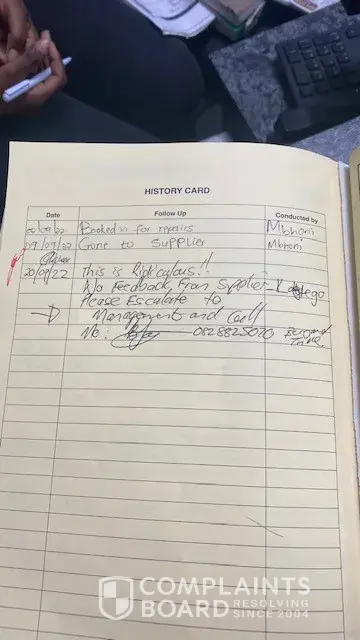 HISTORY CARD
Date Follow Up Conducted by
Booked in for repairs Mbhoni
09/09/22 Gone to Supplier Mbhoni
20/09/22 This is Ridiculous!!
No Feedback From Supplier
Please Escalate to
Management and Call
No:
COMPLAINTS
BOARD RESOLVING
SINCE 2004